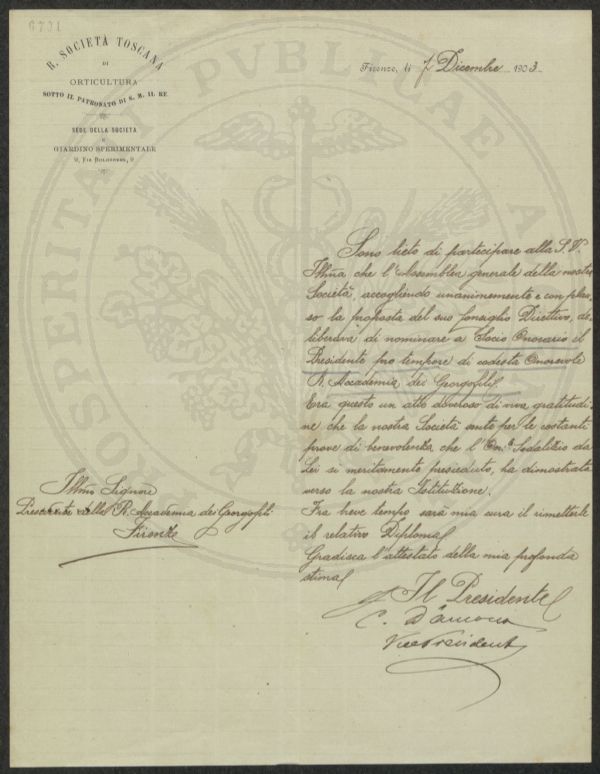 6701
R. SOCIETÀ TOSCANA
DI
ORTICULTURA
SOTTO IL PATRONATO DI S. M. IL RE
SEDE DELLA SOCIETÀ
E
GIARDINO SPERIMENTALE
9, VIA BOLOGNESE, 9
Firenze, li 7 Dicembre 1903
Sono lieto di partecipare alla S. V.
Illma che l'Assemblea generale della nostra
Società, accogliendo unanimemente e con plau-
so la proposta del suo Consiglio Direttivo, de-
liberava di nominare a Socio Onorario il
Presidente pro tempore di codesta Onorevole
R. Accademia dei Georgofili.
Era questo un atto doveroso di viva gratitudi-
ne che la nostra Società sente per le costanti
prove di benevolenza che l'On.e Sodalizio da
Lei si meritamente presieduto, ha dimostrata
verso la nostra Istituzione.
Fra breve tempo sarà mia cura il rimetterle
il relativo Diploma
Gradisca l'attestato della mia profonda
stima
Il Presidente
C. D'Ancona
Vice President
Illmo Signor
Presidente della R. Accademia dei Georgofili
Firenze
PVBLICAE